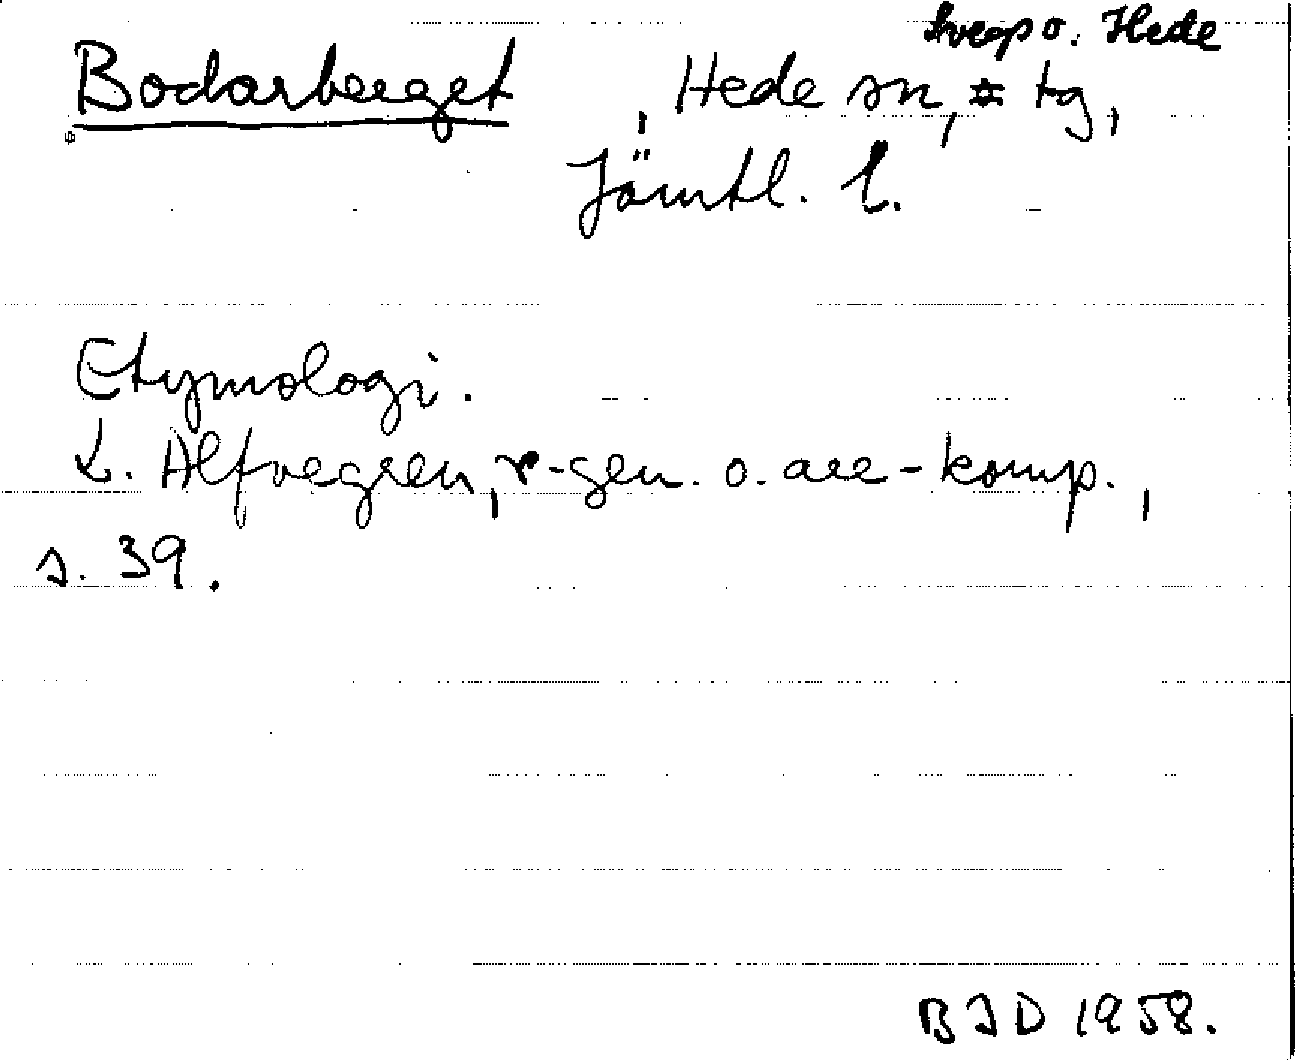 Svegs o. Hede
Bodarberget, Hede sn, tg,
Jämtl. l.
Etymologi.
L. Alfvegren, r-gen. o. are-komp.,
s. 39.
B I D 1958.